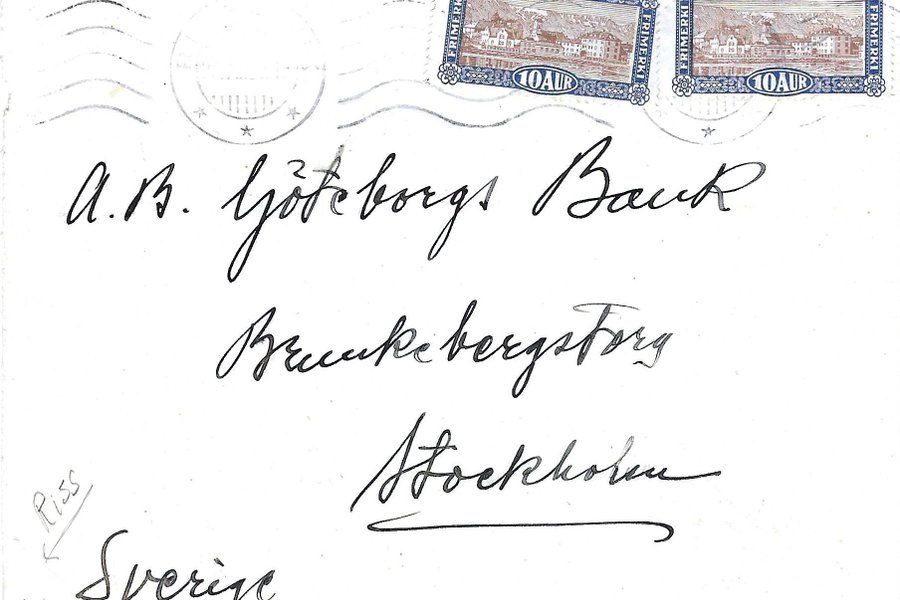 FRIMERKI 10 AUR FRIMERKI
FRIMERKI 10 AUR FRIMERKI
A.B. Göteborgs Bank
Brunkebergstorg
Stockholm
Riss
Sverige